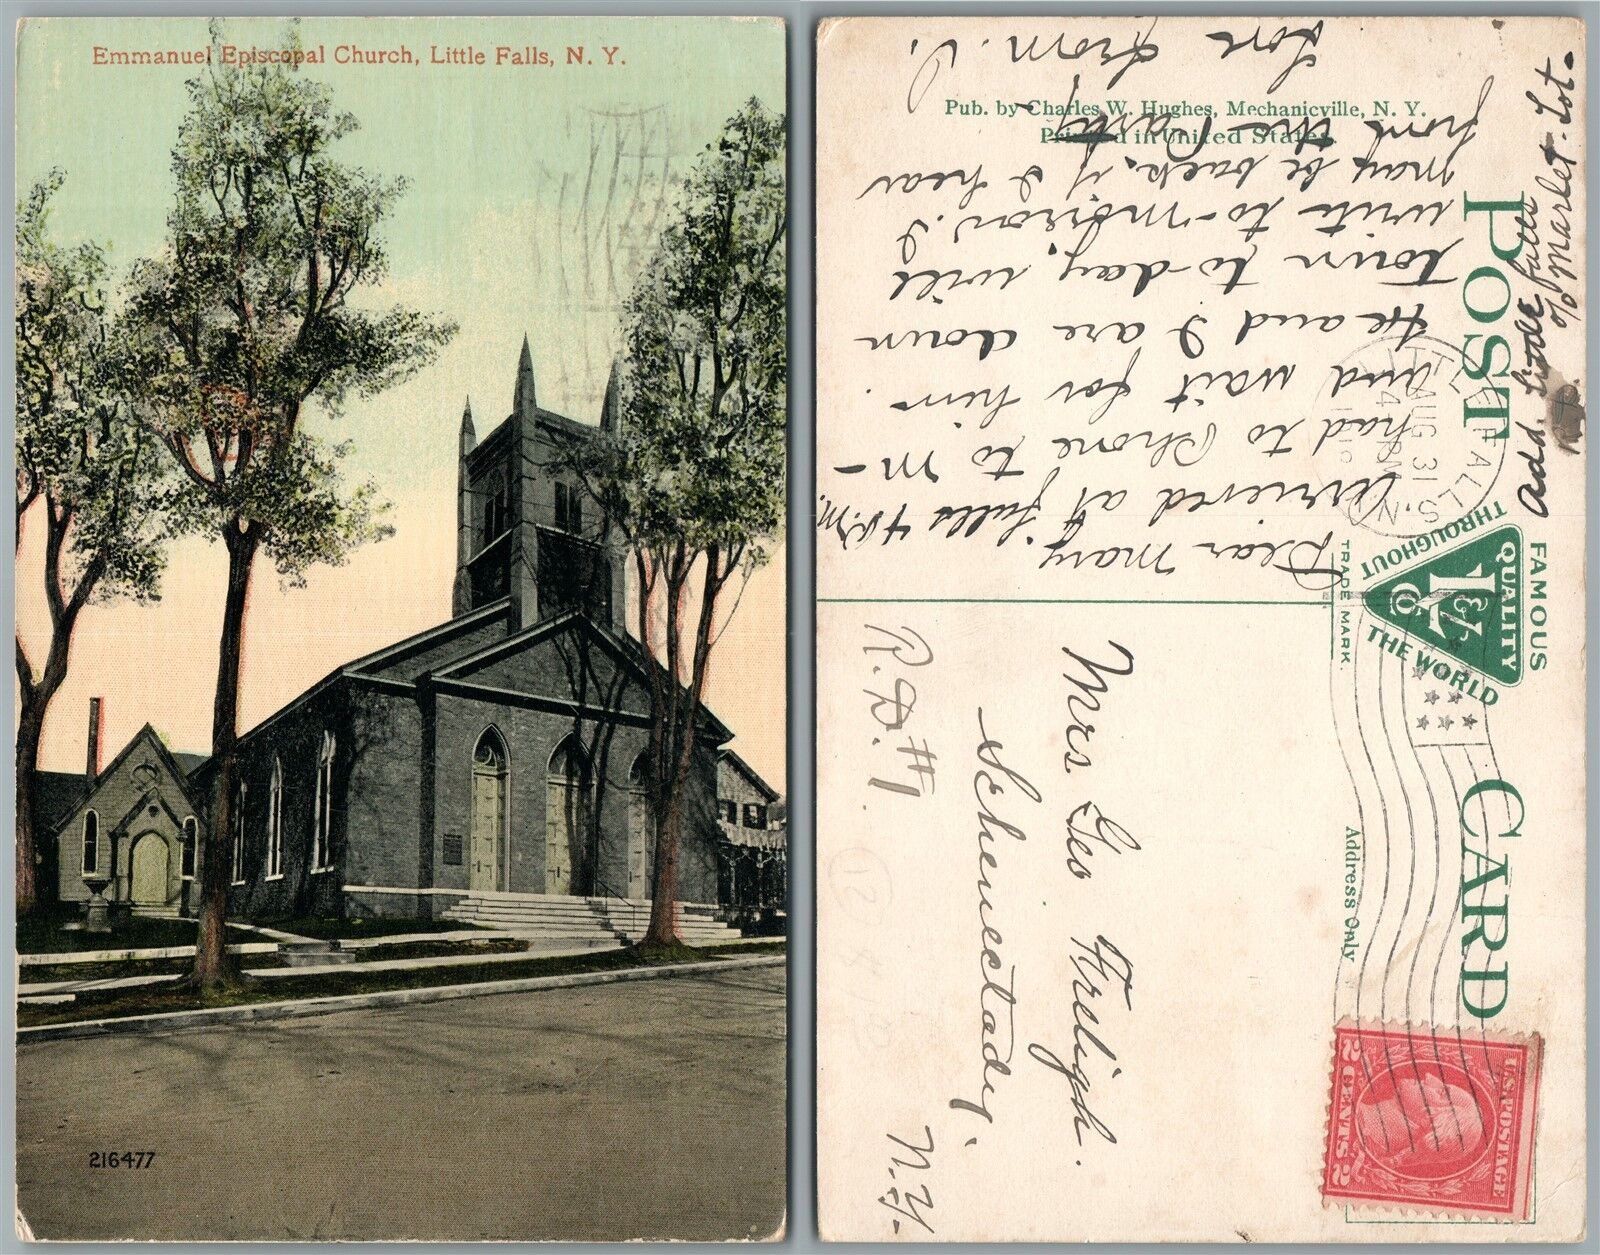 Emmanuel Episcopal Church, Little Falls, N. Y.
216477
FAMOUS
POST CARD
QUALITY
THROUGHOUT
THE WORLD
Co.
TRADE MARK.
Address Only
Pub. by Charles W. Hughes, Mechanicville, N. Y.
Printed in United States.
LITTLE FALLS, N.
AUG 31
4 PM
U.S. POSTAGE
2 CENTS 2
Dear Mary
Arrived at falls 4 P.M.
had to Phone to M-
and wait for him.
He and I are down
Town to-day, will
write to-morrow. I
may be back, if I hear
from the Party
Love
from. J.
Add. Little falls
N.Y.
c/o Market. Lot.
Mrs Geo Fireligh.
Schenectady,
R.D.#1
N.Y.